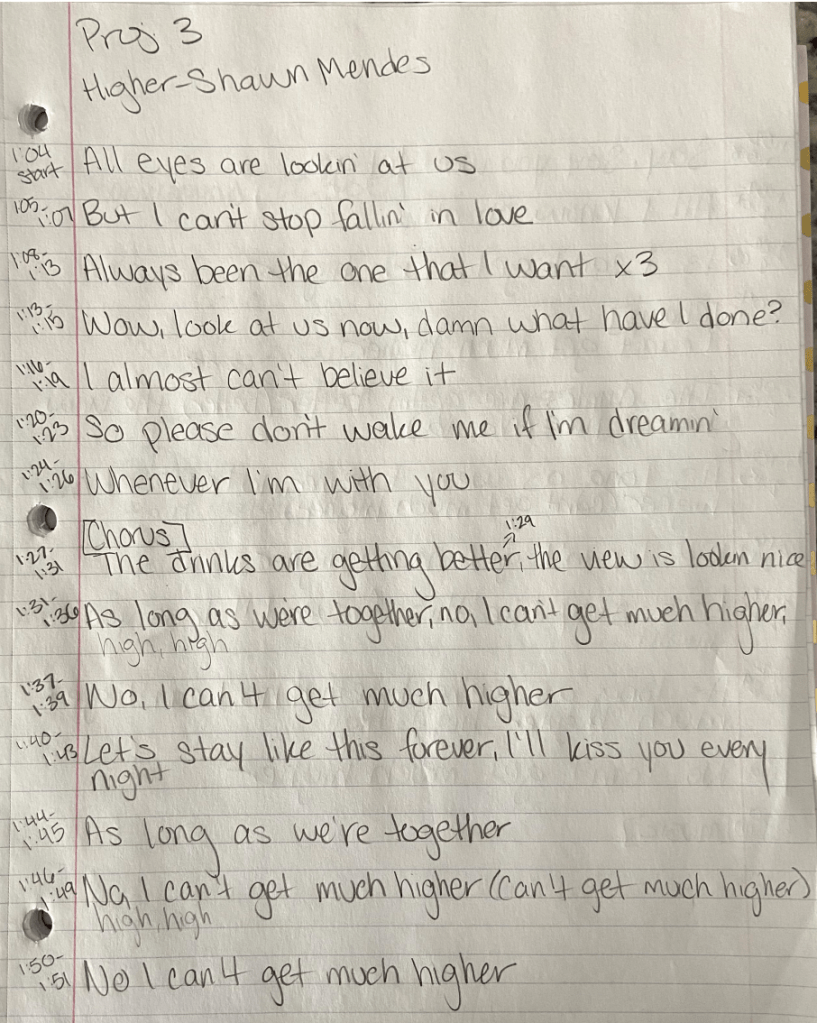 Proj 3
Higher-Shawn Mendes
1:04 start All eyes are lookin' at us
1:05-1:07 But I can't stop fallin' in love
1:08-1:13 Always been the one that I want x3
1:13-1:15 Wow, look at us now, damn what have I done?
1:16-1:19 I almost can't believe it
1:20-1:23 So please don't wake me if I'm dreamin'
1:24-1:26 Whenever I'm with you
[Chorus] 1:29
1:27-1:31 The drinks are getting better, the view is lookin nice
1:31-1:36 As long as we're together, no, I can't get much higher,
high, high
1:37-1:39 No, I can't get much higher
1:40-1:43 Let's stay like this forever, I'll kiss you every
night
1:44-1:45 As long as we're together
1:46-1:49 No, I can't get much higher (can't get much higher)
high, high
1:50-1:51 No I can't get much higher